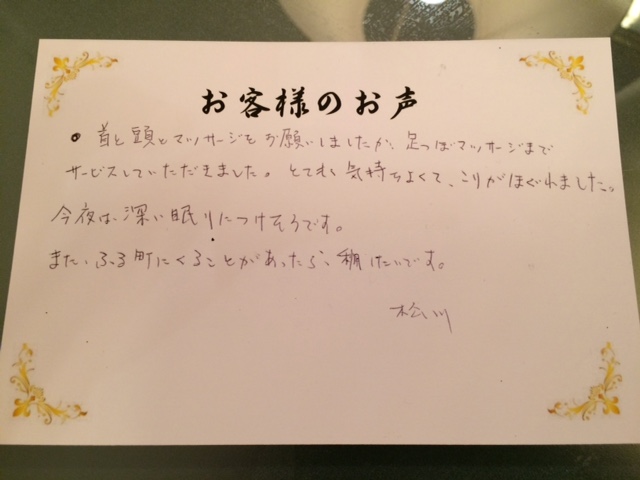 お客様のお声
• 首と頭とマッサージをお願いしましたが、足つぼマッサージまで
サービスしていただきました。とても気持ちよくて、こりがほぐれました。
今夜は、深い眠りにつけそうです。
また、ふる町にくることがあったら、頼みたいです。
松川